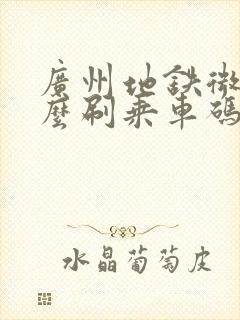 廣州地鉄微
麼刷乘車碼
水晶葡萄皮